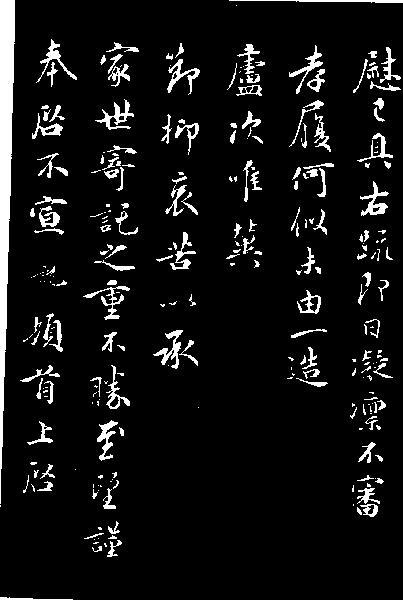 慰已具右疏即日凝凛不審
孝履何似未由一造
廬次唯冀
節抑哀苦以承
家世寄託之重不勝至望謹
奉啓不宣頓首上啓